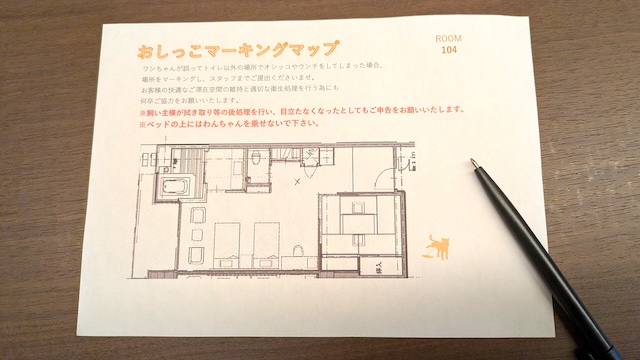 おしっこマーキングマップ
ROOM
104
ワンちゃんが誤ってトイレ以外の場所でオシッコやウンチをしてしまった場合、
場所をマーキングし、スタッフまでご提出くださいませ。
お客様の快適なご滞在空間の維持と適切な衛生処理を行う為にも
何卒ご協力をお願いいたします。
※飼い主様が拭き取り等の後処理を行い、目立たなくなったとしてもご申告をお願いいたします。
※ベッドの上にはわんちゃんを乗せないで下さい。
押入